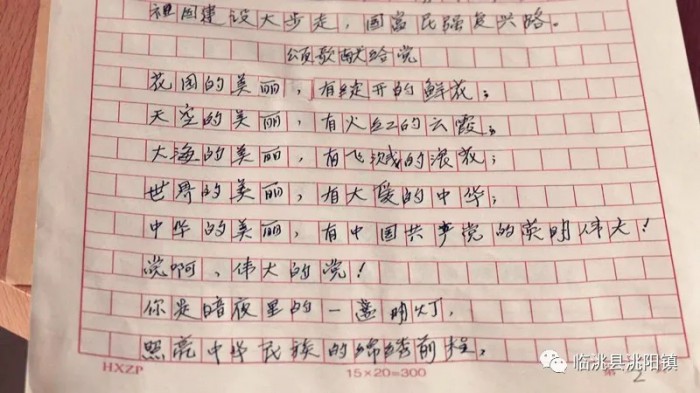 祖国建设大步走，国富民强复兴路。
颂歌献给党
花园的美丽，有绽开的鲜花；
天空的美丽，有火红的云霞；
大海的美丽，有飞溅的浪花；
世界的美丽，有大爱的中华；
中华的美丽，有中国共产党的英明伟大！
党啊，伟大的党！
你是暗夜里的一盏明灯，
照亮中华民族的锦绣前程，
HXZP
15×20=300
第 2
临洮县洮阳镇